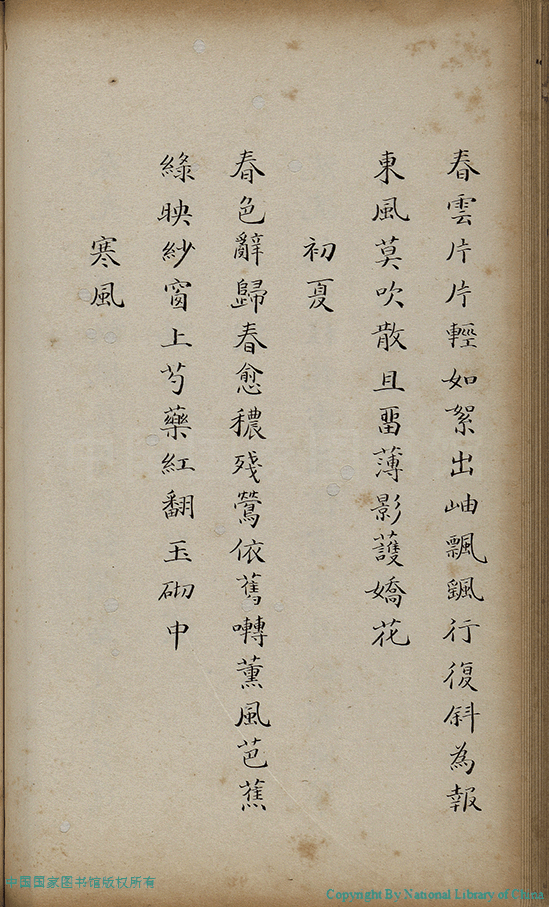 春雲片片輕如絮出岫飄颻行復斜為報
東風莫吹散且畱薄影護嬌花
初夏
春色辭歸春愈穠殘鶯依舊囀薰風芭蕉
綠映紗窗上芍藥紅翻玉砌中
寒風
中国国家图书馆版权所有
Copyright By National Library of China